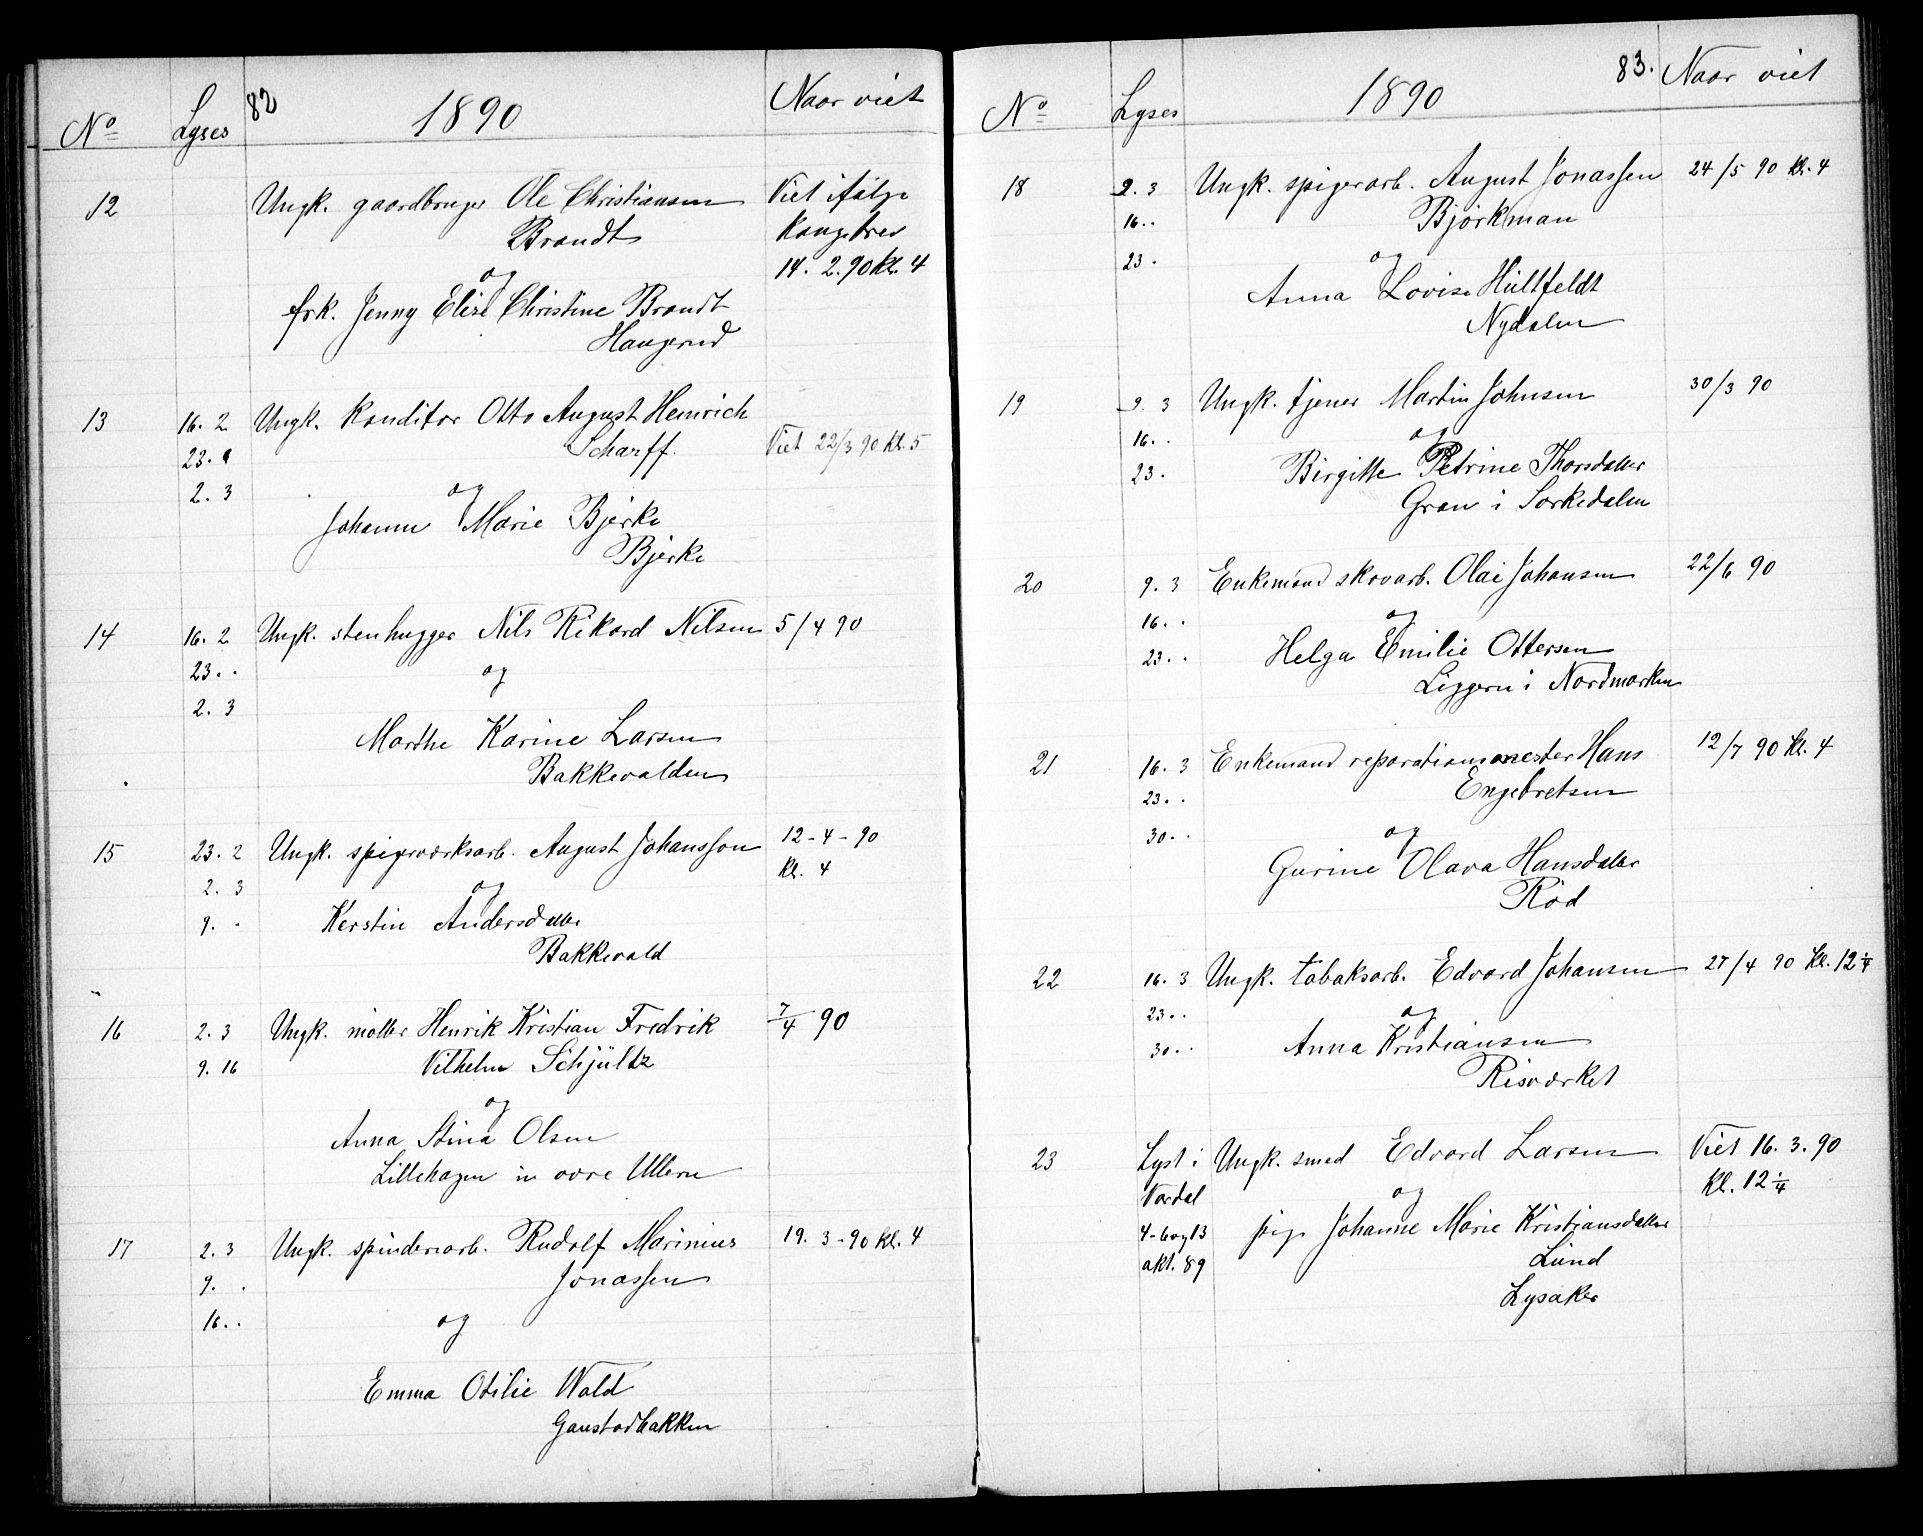 82
Nº Lyses 1890 Naar viet
12 Ungk. gaardbruger Ole Christiansen Viet ifølge
Brandt Kongebrev
og 14. 2. 90 Kl. 4
frk. Jenny Elise Christine Brandt
Haugerud
13 16. 2 Ungk. Konditor Otto August Heinrich
23. " Scharff. Viet 22/3 90 kl. 5
2. 3 og
Johanne Marie Bjerke
Bjerke
14 16. 2 Ungk. stenhugger Nils Rikard Nilsen 5/4 90
23. . og
2. 3
Marthe Karine Larsen
Bakkevolden
15 23. 2 Ungk. spigerværksarb. August Johansson 12-4-90
2. 3 og Kl. 4
9. . Kerstin Andersdatter
Bakkevold
16 2. 3 Ungk. møller Henrik Kristian Fredrik 7/4 90
9. 16 Vilhelm Schjültz
og
Anna Stina Olsen
Lillehagen in øvre Ullern
17 2. 3 Ungk. spinderiarb. Rudolf Marinius 19. 3-90 kl. 4
9. . Jonassen
16. . og
Emma Otilie Wold
Gaustadbakken
83.
Nº Lyses 1890 Naar viet
18 9. 3 Ungk. spigerarb. August Jonassen 24/5 90 kl. 4
16. . Bjørkman
23 . og
Anna Lovise Hültfeldt
Nydalen
19 9. 3 Ungk. tjener Martin Johnsen 30/3 90
16. . og
23 . Birgitte Petrine Thorsdatter
Gran i Sørkedalen
20 9. 3 Enkemand skovarb. Olai Johansen 22/6 90
16. . og
23. . Helga Emilie Ottersen
Liggern i Nordmarken
21 16. 3 Enkemand reparationsmester Hans 12/7 90 Kl. 4
23. . Engebretsen
30. . og
Gurine Olava Hansdatter
Röd
22 16. 3 Ungk. tobaksarb. Edvard Johansen 27/4 90 Kl. 12 1/4
23. . og
30. . Anna Kristiansen
Risværket
23 Lyst i Ungk. smed Edvard Larsen Viet 16. 3. 90
Vardal og Kl. 12 1/4
4-6og13 pige Johanne Marie Kristiansdatter
okt. 89 Lund
Lysaker